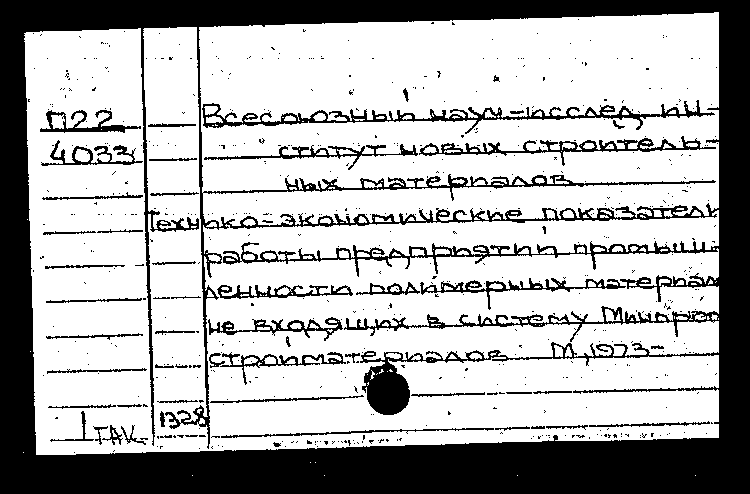 П22 Всесоюзный науч-исслед. ин-
4033 ститут новых строитель-
ных материалов.
Технико-экономические показатели
работы предприятий промыш-
ленности полимерных материал
не входящих в систему Минпром
стройматериалов М, 1973-
1 ТАК. 1328